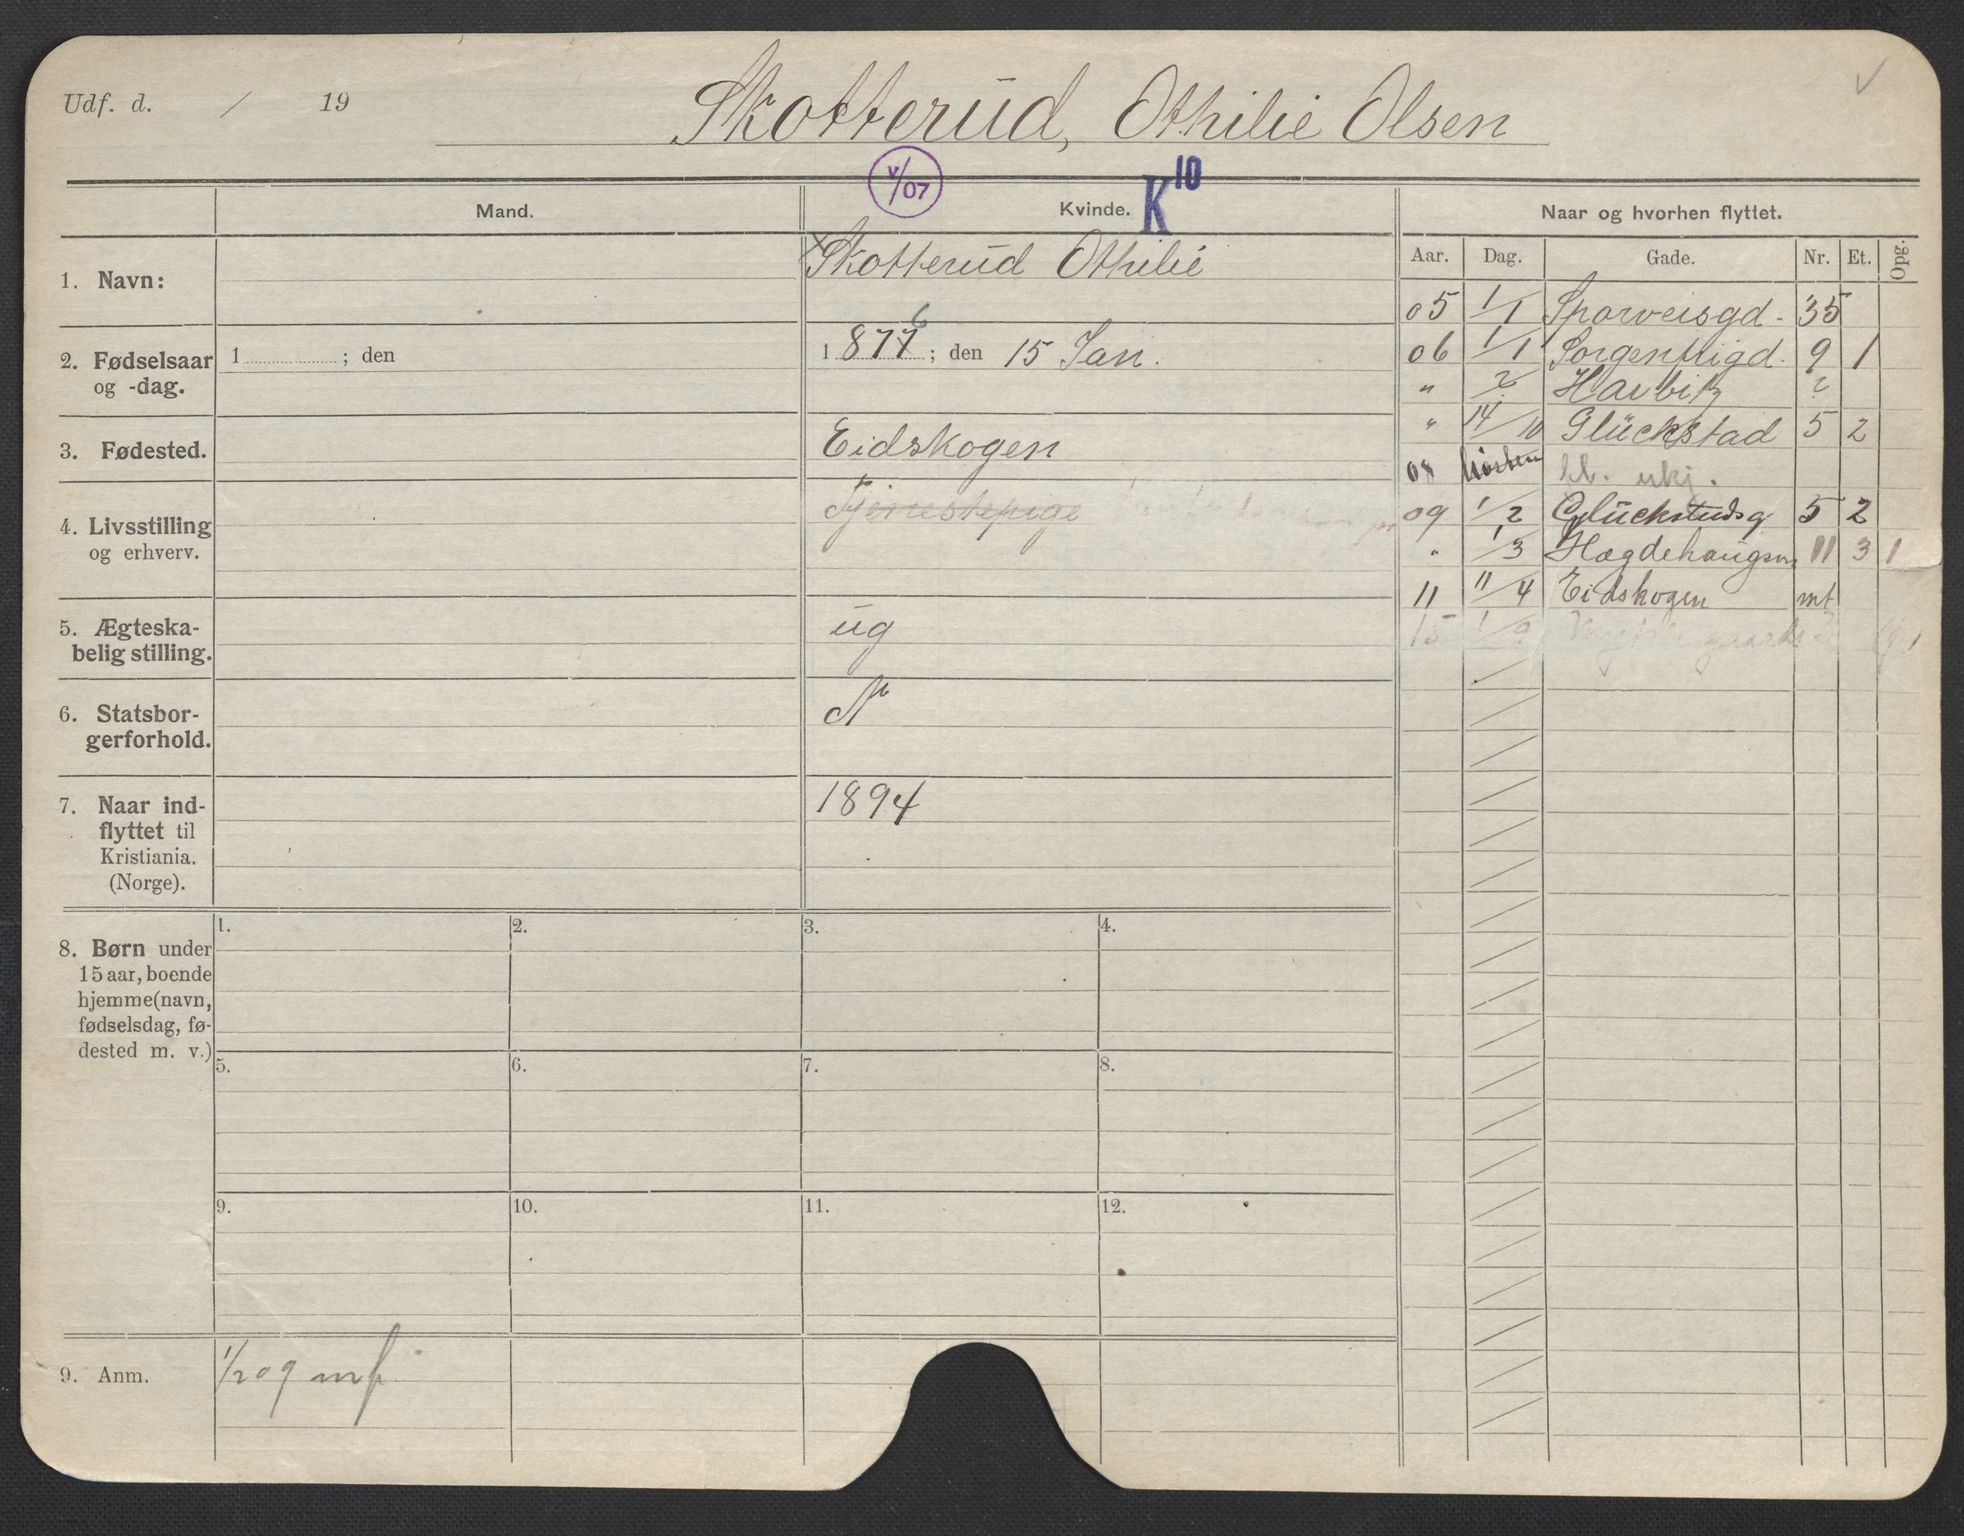 Udf. d. / 19
Skotterud, Othilie Olsen
v/07
K10
Mand.
Kvinde.
Naar og hvorhen flyttet.
Aar. Dag. Gade. Nr. Et. Opg.
1. Navn:
x Skotterud Othilie
2. Fødselsaar og -dag.
1 ; den
1 877 6 ; den 15 Jan.
3. Fødested.
Eidskogen
4. Livsstilling og erhverv.
Tjenestepige
5. Ægteska-
belig stilling.
ug
6. Statsbor-
gerforhold.
N
7. Naar ind-
flyttet til
Kristiania.
(Norge).
1894
05 1/1 Sporveisgd. 35
06 1/1 Sorgenfrigd. 9 1
" ? Harbitz ?
" 14/10 Glückstad 5 2
08 høsten fl. ukj.
09 1/2 Glückstadsg 5 2
" 1/3 Hægdehaugsv 11 3 1
11 11/4 Eidskogen mt
15 1/9
8. Børn under
15 aar, boende
hjemme (navn,
fødselsdag, fø-
dested m. v.)
1. 2. 3. 4.
5. 6. 7. 8.
9. 10. 11. 12.
9. Anm.
1/2 09 mf